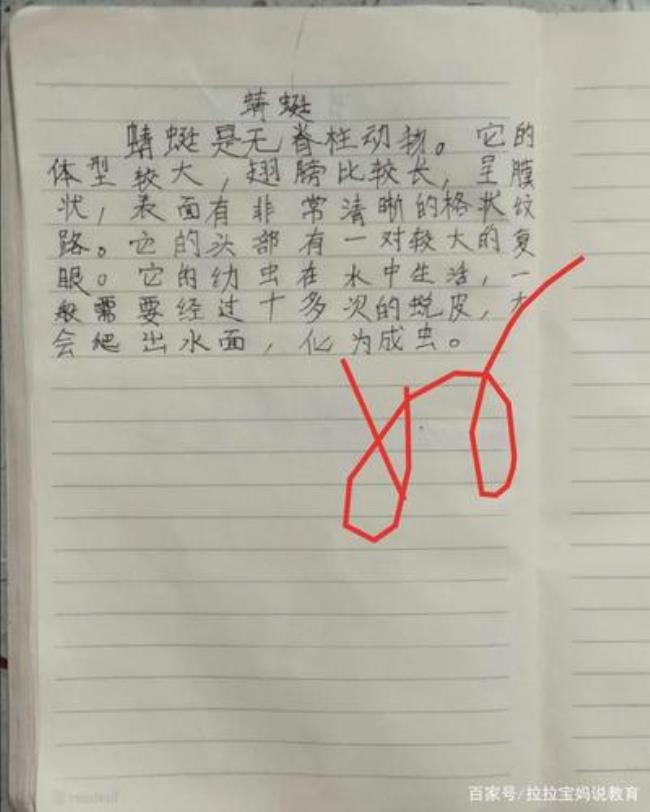 蜻蜓
蜻蜓是无脊柱动物。它的
体型较大，翅膀比较长，呈膜
状，表面有非常清晰的格状纹
路。它的头部有一对较大的复
眼。它的幼虫在水中生活，一
般需要经过十多次的蜕皮，才
会爬出水面，化为成虫。
百家号/拉拉宝妈说教育